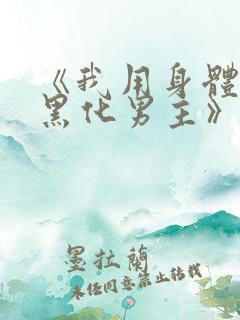 《我用身體
黑化男主》
墨拉蘭
未經同意禁止轉載